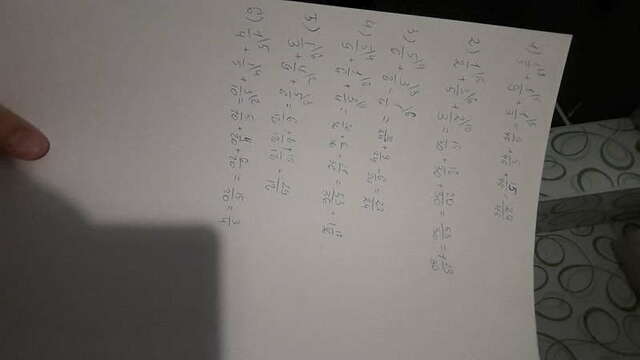 1) 1/5\9 + 1/9\5 + 1/3\15 = 9/45 + 5/45 + 15/45 = 29/45
2) 1/2\15 + 3/5\6 + 2/3\10 = 15/30 + 18/30 + 20/30 = 53/30 = 1 23/30
3) 5/6\4 + 3/8\3 - 1/4\6 = 20/24 + 9/24 - 6/24 = 23/24
4) 5/9\4 + 1/6\6 + 3/4\9 = 20/36 + 6/36 + 27/36 = 53/36 = 1 17/36
5) 1/3\6 + 4/9\2 + 5/6\3 = 6/18 + 8/18 + 15/18 = 29/18
6) 1/4\5 + 1/5\4 + 3/10\2 = 5/20 + 4/20 + 6/20 = 15/20 = 3/4